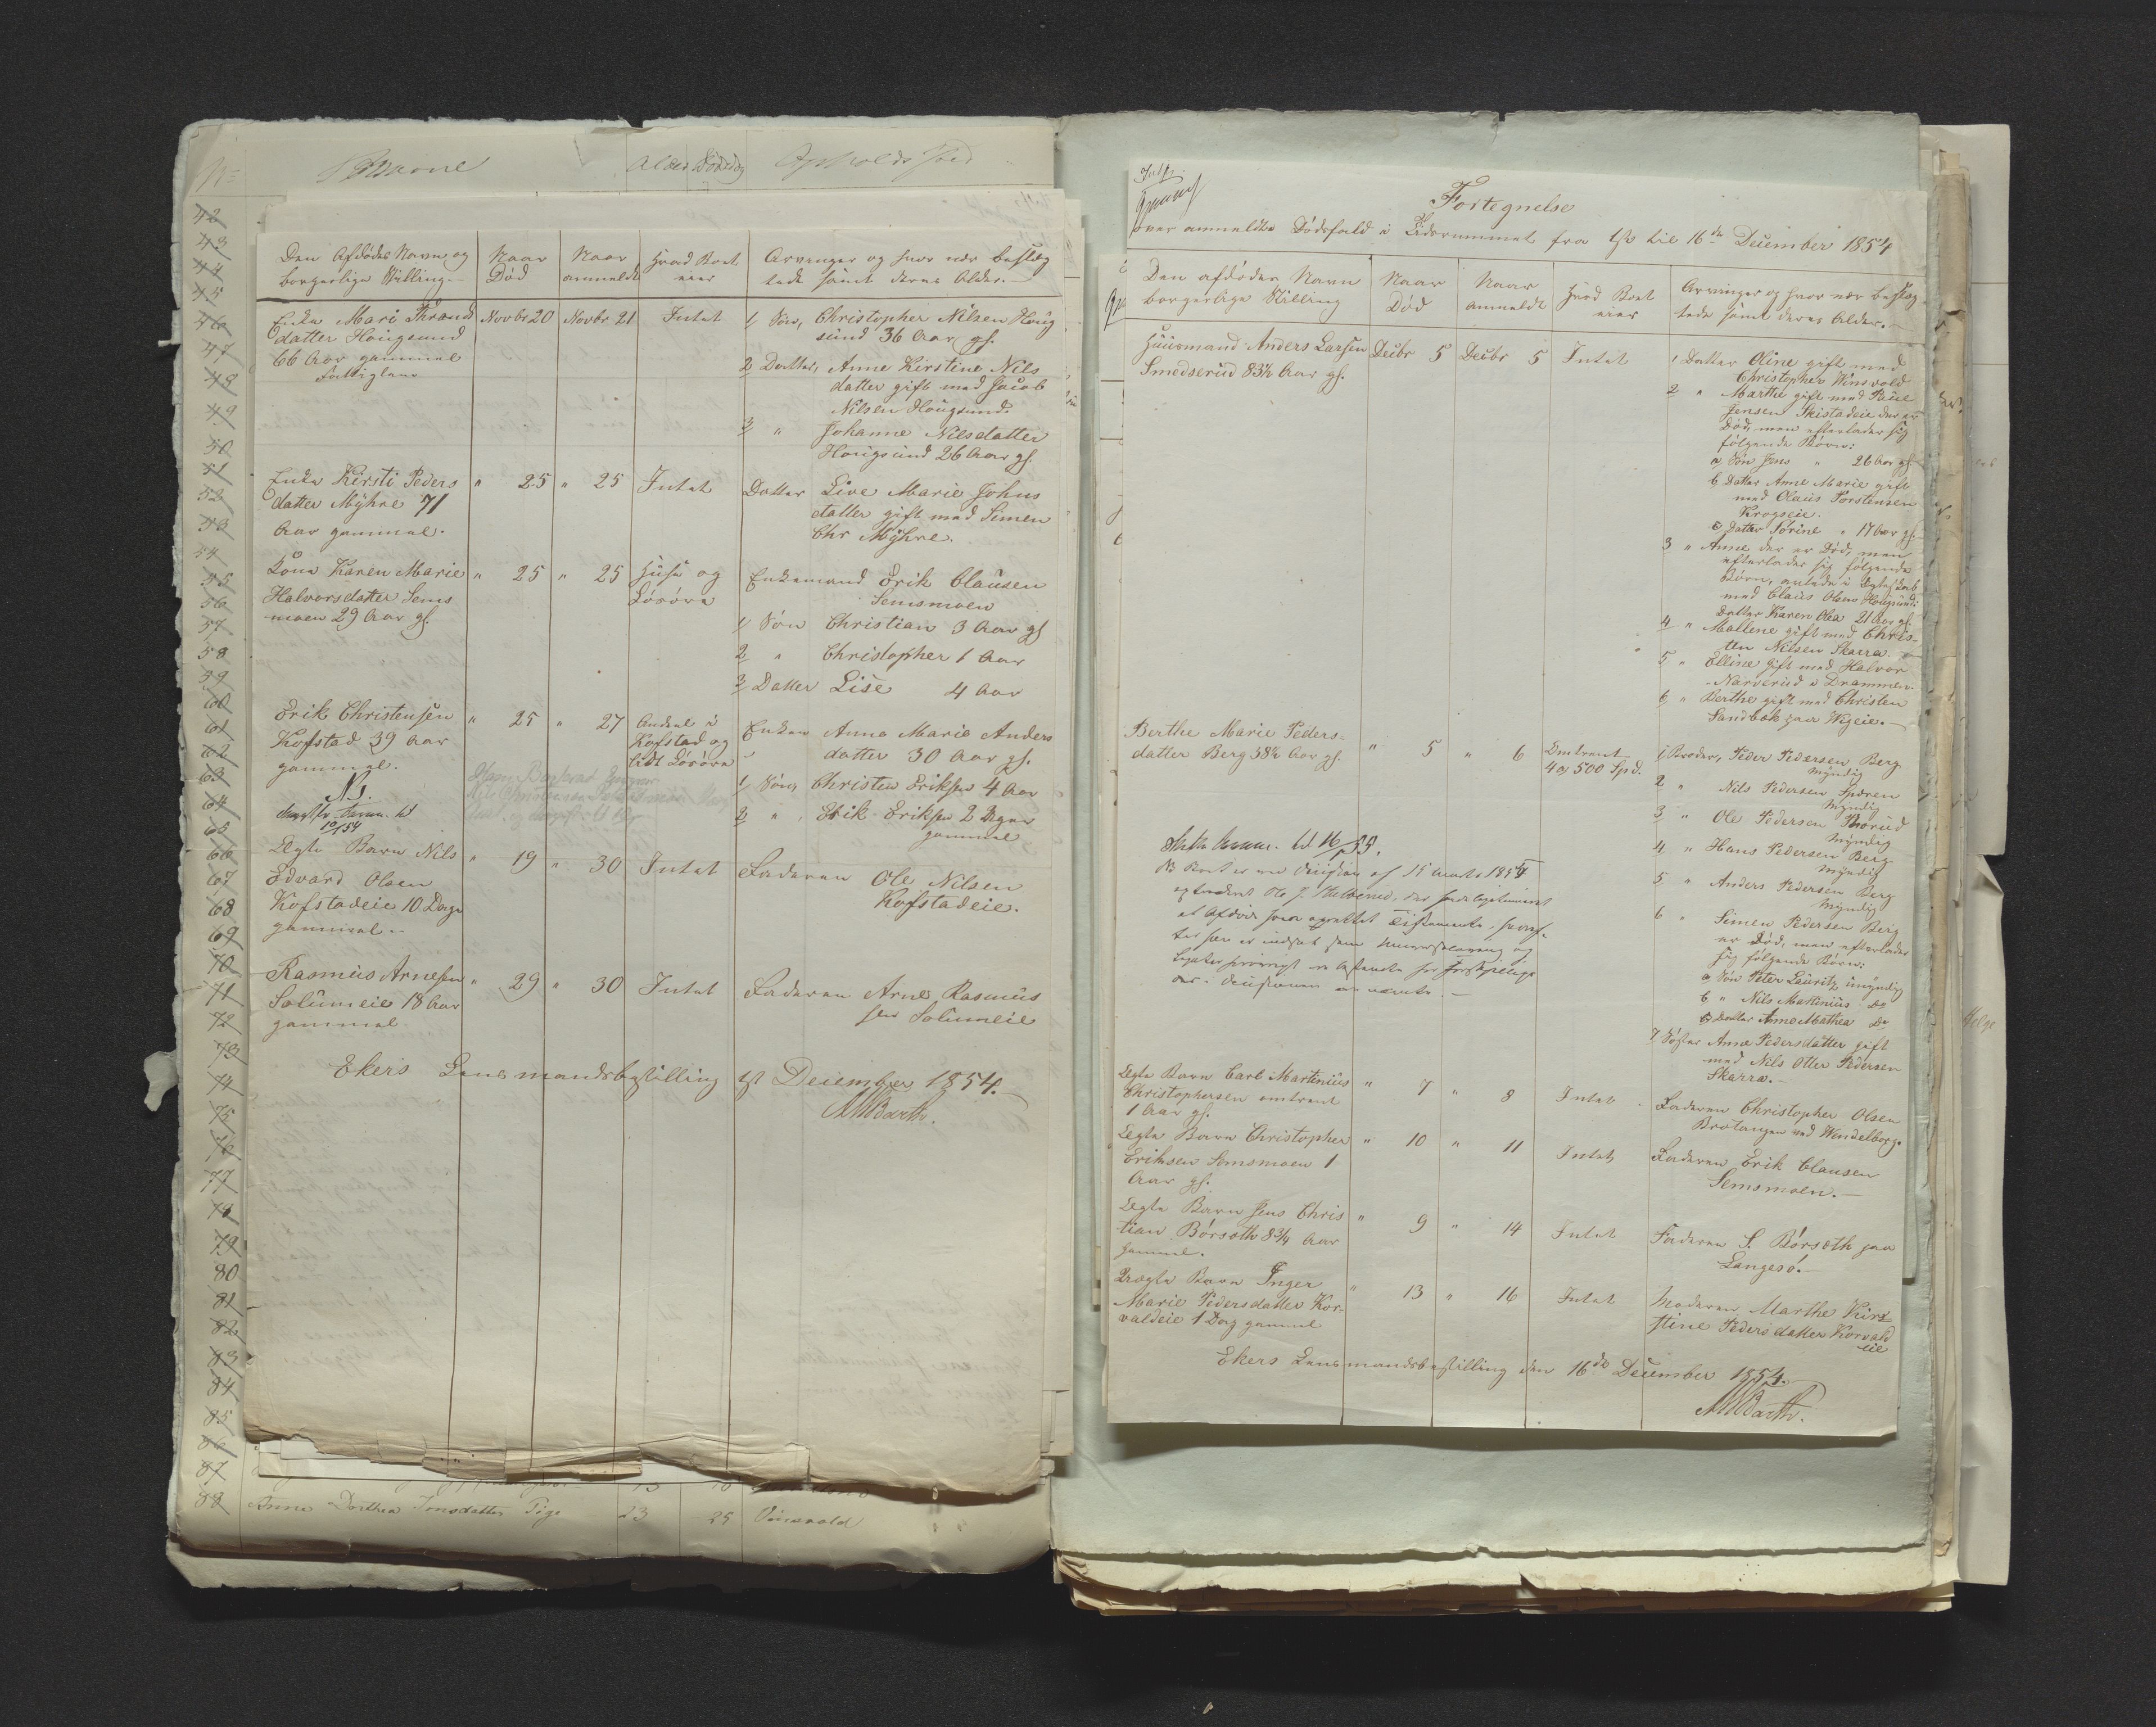 Alder Dødsdag Opholdssted
42
43
44
45
46
47
48
49
50
51
52
53
54
55
56
57
58
59
60
61
62
63
64
65
66
67
68
69
70
71
72
73
74
75
76
77
78
79
80
81
82
83
84
85
86
87
88 Anne Dorthea Jonsdatter Pige 23 25 Vinsvold
Den Afdødes Navn og borgerlige Stilling.
Naar Død
Naar anmeldt
Hvad Boet eier
Arvinger og hvor nær beslæg
tede samt deres Alder.
Enke Mari Thrands
datter Hougsund
66 Aar gammel
Fattiglem
Novbr 20 Novbr 21 Intet
1/ Søn, Christopher Nilsen Houg
sund 36 Aar gl.
2 Datter, Anne Kirstine Nils
datter gift med Jacob
Nilsen Hougsund.
3 " Johanne Nilsdatter
Hougsund 26 Aar gl.
Enke Kirsti Peders
datter Myhre 71
Aar gammel.
" 25 " 25 Intet
Datter Live Marie Johns
datter gift med Simen
Chr Myhre.
Kone Karen Marie
Halvorsdatter Sems
moen 29 Aar gl.
" 25 " 25 Huse og
Løsøre
Enkemand Erik Clausen
Semsmoen
1/ Søn Christian 3 Aar gl
2 " Christopher 1 Aar
3 Datter Lise 4 Aar
Erik Christensen
Kofstad 39 Aar
gammel.
" 25 " 27 Andeel i
Kofstad og
lidt Løsøre
Enken Anne Marie Anders
datter 30 Aar gl.
1/ Søn, Christen Eriksen 4 Aar
2 " Erik Eriksen 2 Dage
gammel
Ægte Barn Nils
Edvard Olsen
Kofstadeie 10 Dage
gammel.
" 19 " 30 Intet
Faderen Ole Nilsen
Kofstadeie.
Rasmus Arnesen
Solumeie 18 Aar
gammel
" 29 " 30 Intet
Faderen Arne Rasmus
sen Solumeie
Ekers Lensmandsbestilling 1st December 1854.
MWBarth.
Fortegnelse
over anmeldte Dødsfald i Tidsrummet fra 1ste til 16de December 1854
Den afdødes Navn
borgerlige Stilling
Naar Død
Naar anmeldt
Hvad Boet eier
Arvinger og hvor nær beslæg
tede samt deres Alder.
Huusmand Anders Larsen
Smedserud 83½ Aar gl.
Decbr 5 Decbr 5 Intet
1 Datter Oline gift med
Christopher Winsvold
2 " Marthe gift med Paul
Jensen Skistadeie der er
Død, men efterlader sig
følgende Børn:
a Søn Jens " 26 Aar gl.
b Datter Anne Marie gift
med Olaus Torstensen
Krogseie.
c Datter Torine " 17 Aar gl.
3 " Anne der er Død, men
efterlader sig følgende
Børn, avlede i Ægteskab
med Claus Olsen Hougsund:
Datter Karen Olea 21 Aar gl.
4 " Mallene gift med Chris-
ten Nilsen Skarra.
5 " Elline gift med Halvor
Narverud i Drammen.
6 " Berthe gift med Christen
Sandbæk paa Wigeie.
Berthe Marie Peders-
datter Berg 58½ Aar gl.
" 5 " 6 Omtrent
4 a 500 Spd.
1/ Broder, Peder Pedersen Berg
Myndig
2 " Nils Pedersen Speren
Myndig
3 " Ole Pedersen Thorud
Myndig
4 " Hans Pedersen Berg
Myndig
5 " Anders Pedersen Berg
Myndig
6 " Simen Pedersen Berg
er Død, men efterlader
sig følgende Børn:
a Søn Peter Lauritz umyndig
b " Nils Mathinius Do
c Datter Anne Mathea Do
7 Søster Anne Pedersdatter gift
med Nils Otter Pedersen
Skarra.
Ægte Barn Carl Martinius
Christophersen omtrent
1 Aar gl.
" 7 " 8 Intet
Faderen Christopher Olsen
Brotangen ved Wendelborg.
Ægte Barn Christopher
Eriksen Semsmoen 1
Aar gl.
" 10 " 11 Intet
Faderen Erik Clausen
Semsmoen.
Ægte Barn Jens Chris
tian Børseth 8¾ Aar
gammel.
" 9 " 14 Intet
Faderen S. Børseth paa
Langesø.
Uægte Barn Inger
Marie Pedersdatter Kor-
valdeie 1 Dag gammel
" 13 " 16 Intet
Moderen Marthe Kir-
stine Pedersdatter Korvald
eie
Ekers Lensmandsbestilling den 16de December 1854.
MWBarth.